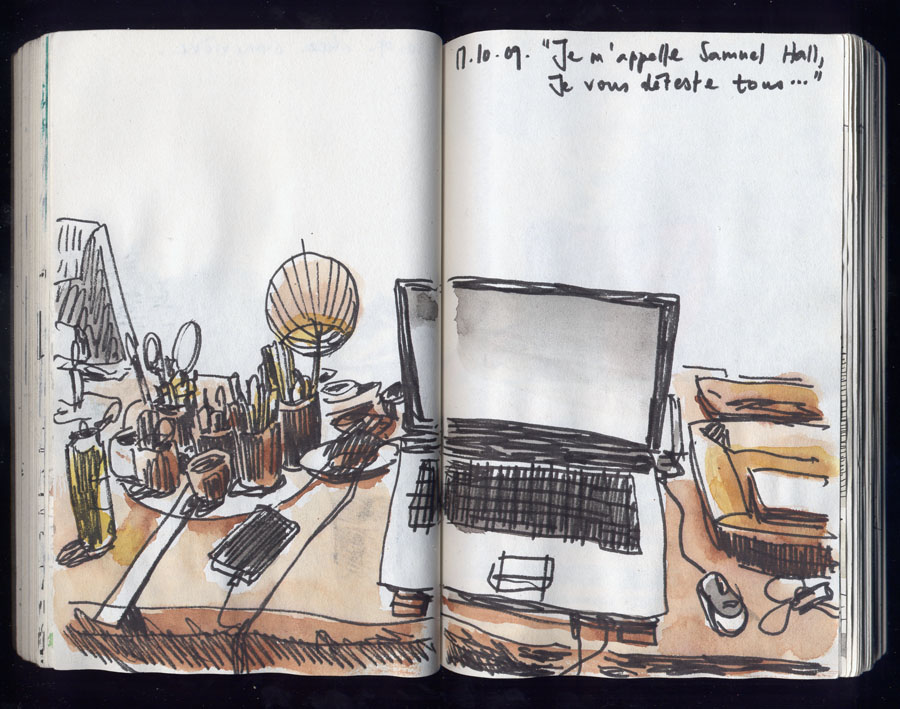 17.10.09. "Je m'appelle Samuel Hall,
Je vous déteste tous..."